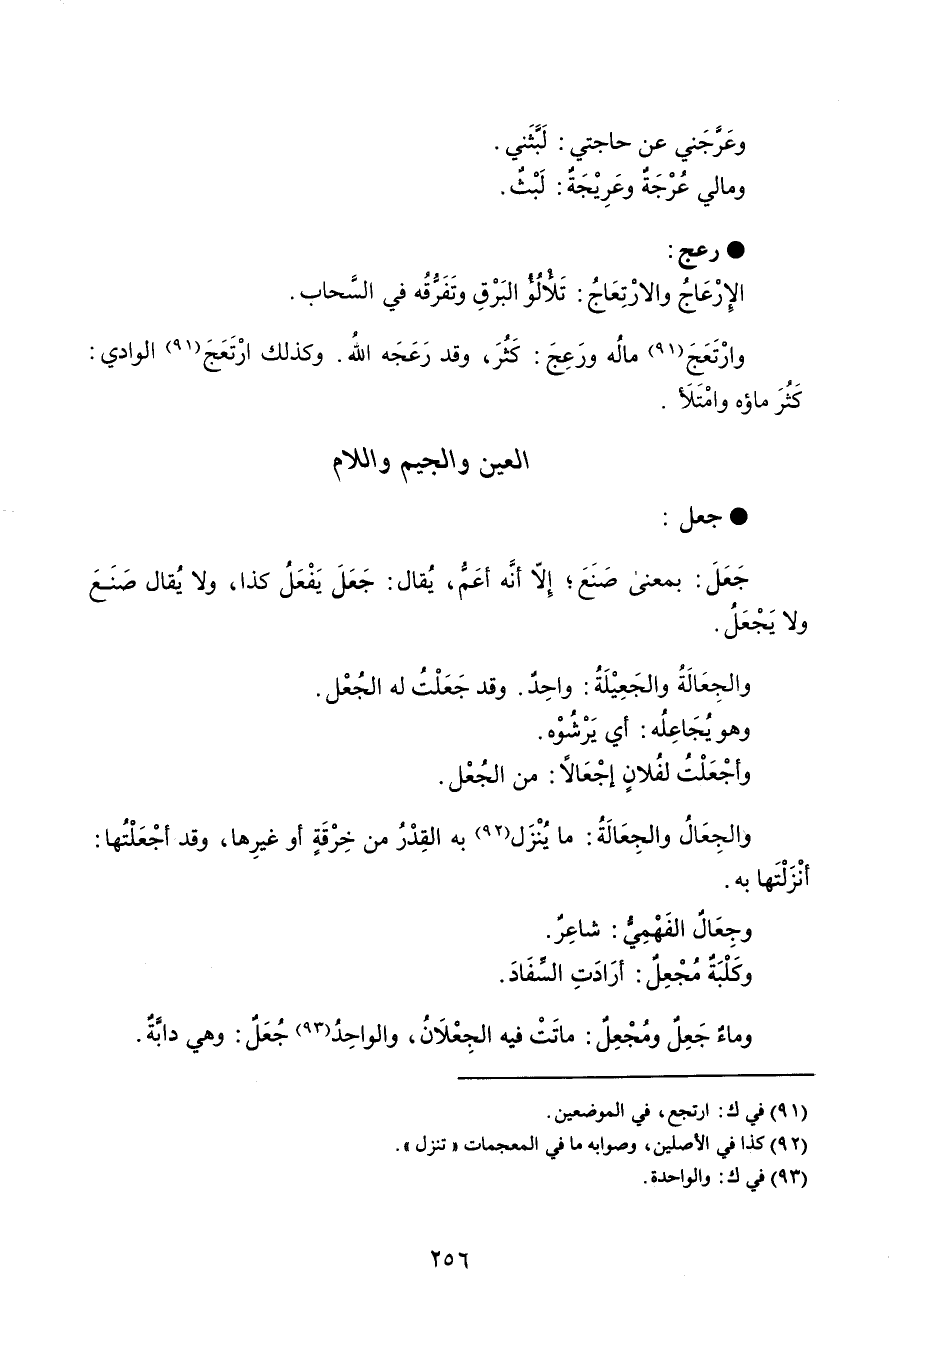 وعَرَّجَني عن حاجتي : لَبَّثَني .
ومالي عُرْجَةٌ وعَرِيْجَةٌ : لَبْثٌ .
● رعج :
الإِرْعَاجُ والارْتِعَاجُ : تَلأْلُؤُ البَرْقِ وتَفَرُّقُه في السَّحاب .
وارْتَعَجَ(٩١) مالُه ورَعِجَ : كَثُرَ، وقد رَعَجَه اللهُ . وكذلك ارْتَعَجَ(٩١) الوادي :
كَثُرَ ماؤه وامْتَلَأ .
العين والجيم واللام
● جعل :
جَعَلَ : بمعنىٰ صَنَعَ ؛ إلاّ أنَّه أعَمُّ، يُقال : جَعَلَ يَفْعَلُ كذا، ولا يُقال صَنَـعَ
ولا يَجْعَلُ .
والجِعَالَةُ والجَعِيْلَةُ : واحِدٌ . وقد جَعَلْتُ له الجُعْل .
وهو يُجَاعِلُه : أي يَرْشُوْه .
وأجْعَلْتُ لفُلانٍ إجْعَالاً : من الجُعْل .
والجِعَالُ والجِعَالَةُ : ما يُنْزَل(٩٢) به القِدْرُ من خِرْقَةٍ أو غيرِها، وقد أجْعَلْتُها :
أنْزَلْتَها به .
وجِعَالٌ الفَهْمِيُّ : شاعِرٌ .
وكَلْبَةٌ مُجْعِلٌ : أرَادَتِ السِّفَادَ .
وماءٌ جَعِلٌ ومُجْعِلٌ : ماتَتْ فيه الجِعْلَانُ، والواحِدُ(٩٣) جُعَلٌ : وهي دابَّةٌ .
(٩١) في ك : ارتجع، في الموضعين .
(٩٢) كذا في الأصلين، وصوابه ما في المعجمات « تنزل » .
(٩٣) في ك : والواحدة .
٢٥٦